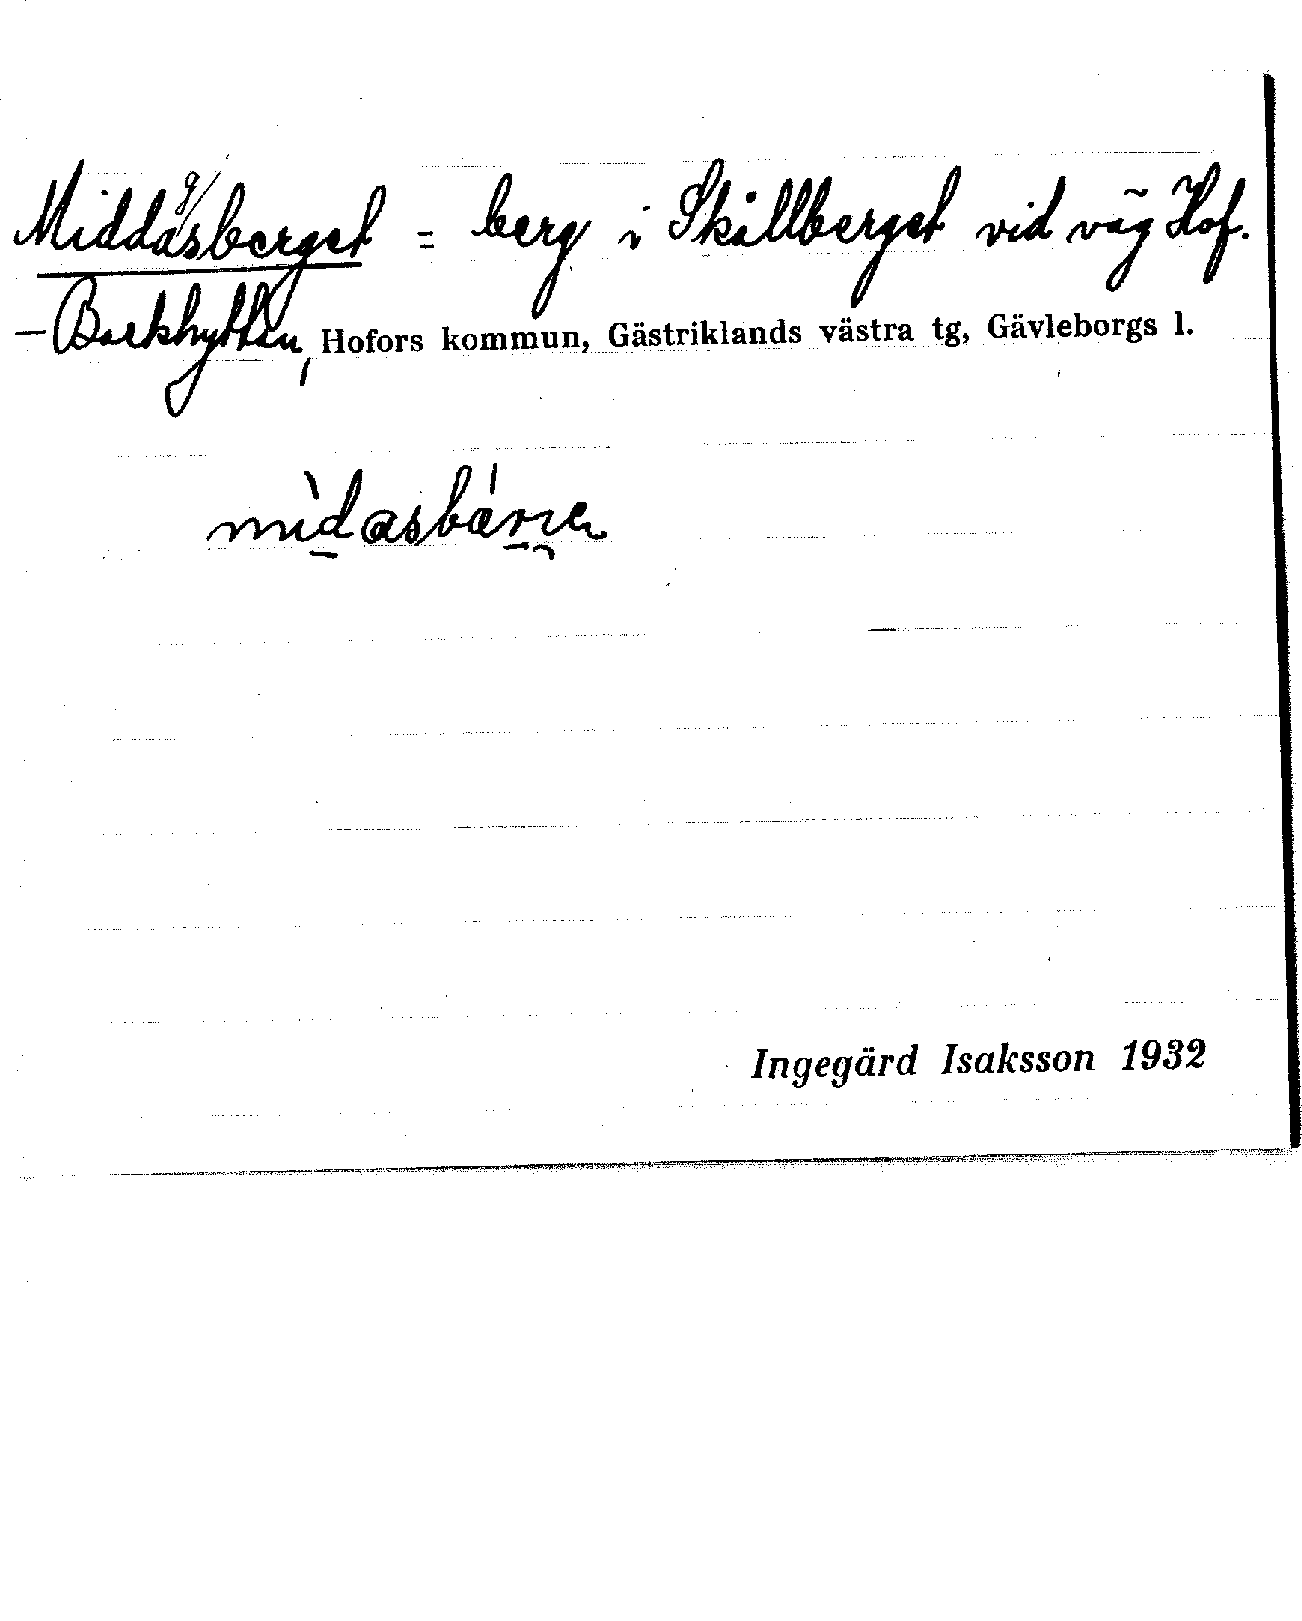 Middagsberget = berg i Skållberget vid väg Hof.
– Barkhyttan, Hofors kommun, Gästriklands västra tg, Gävleborgs l.
mìdasbárre
Ingegärd Isaksson 1932